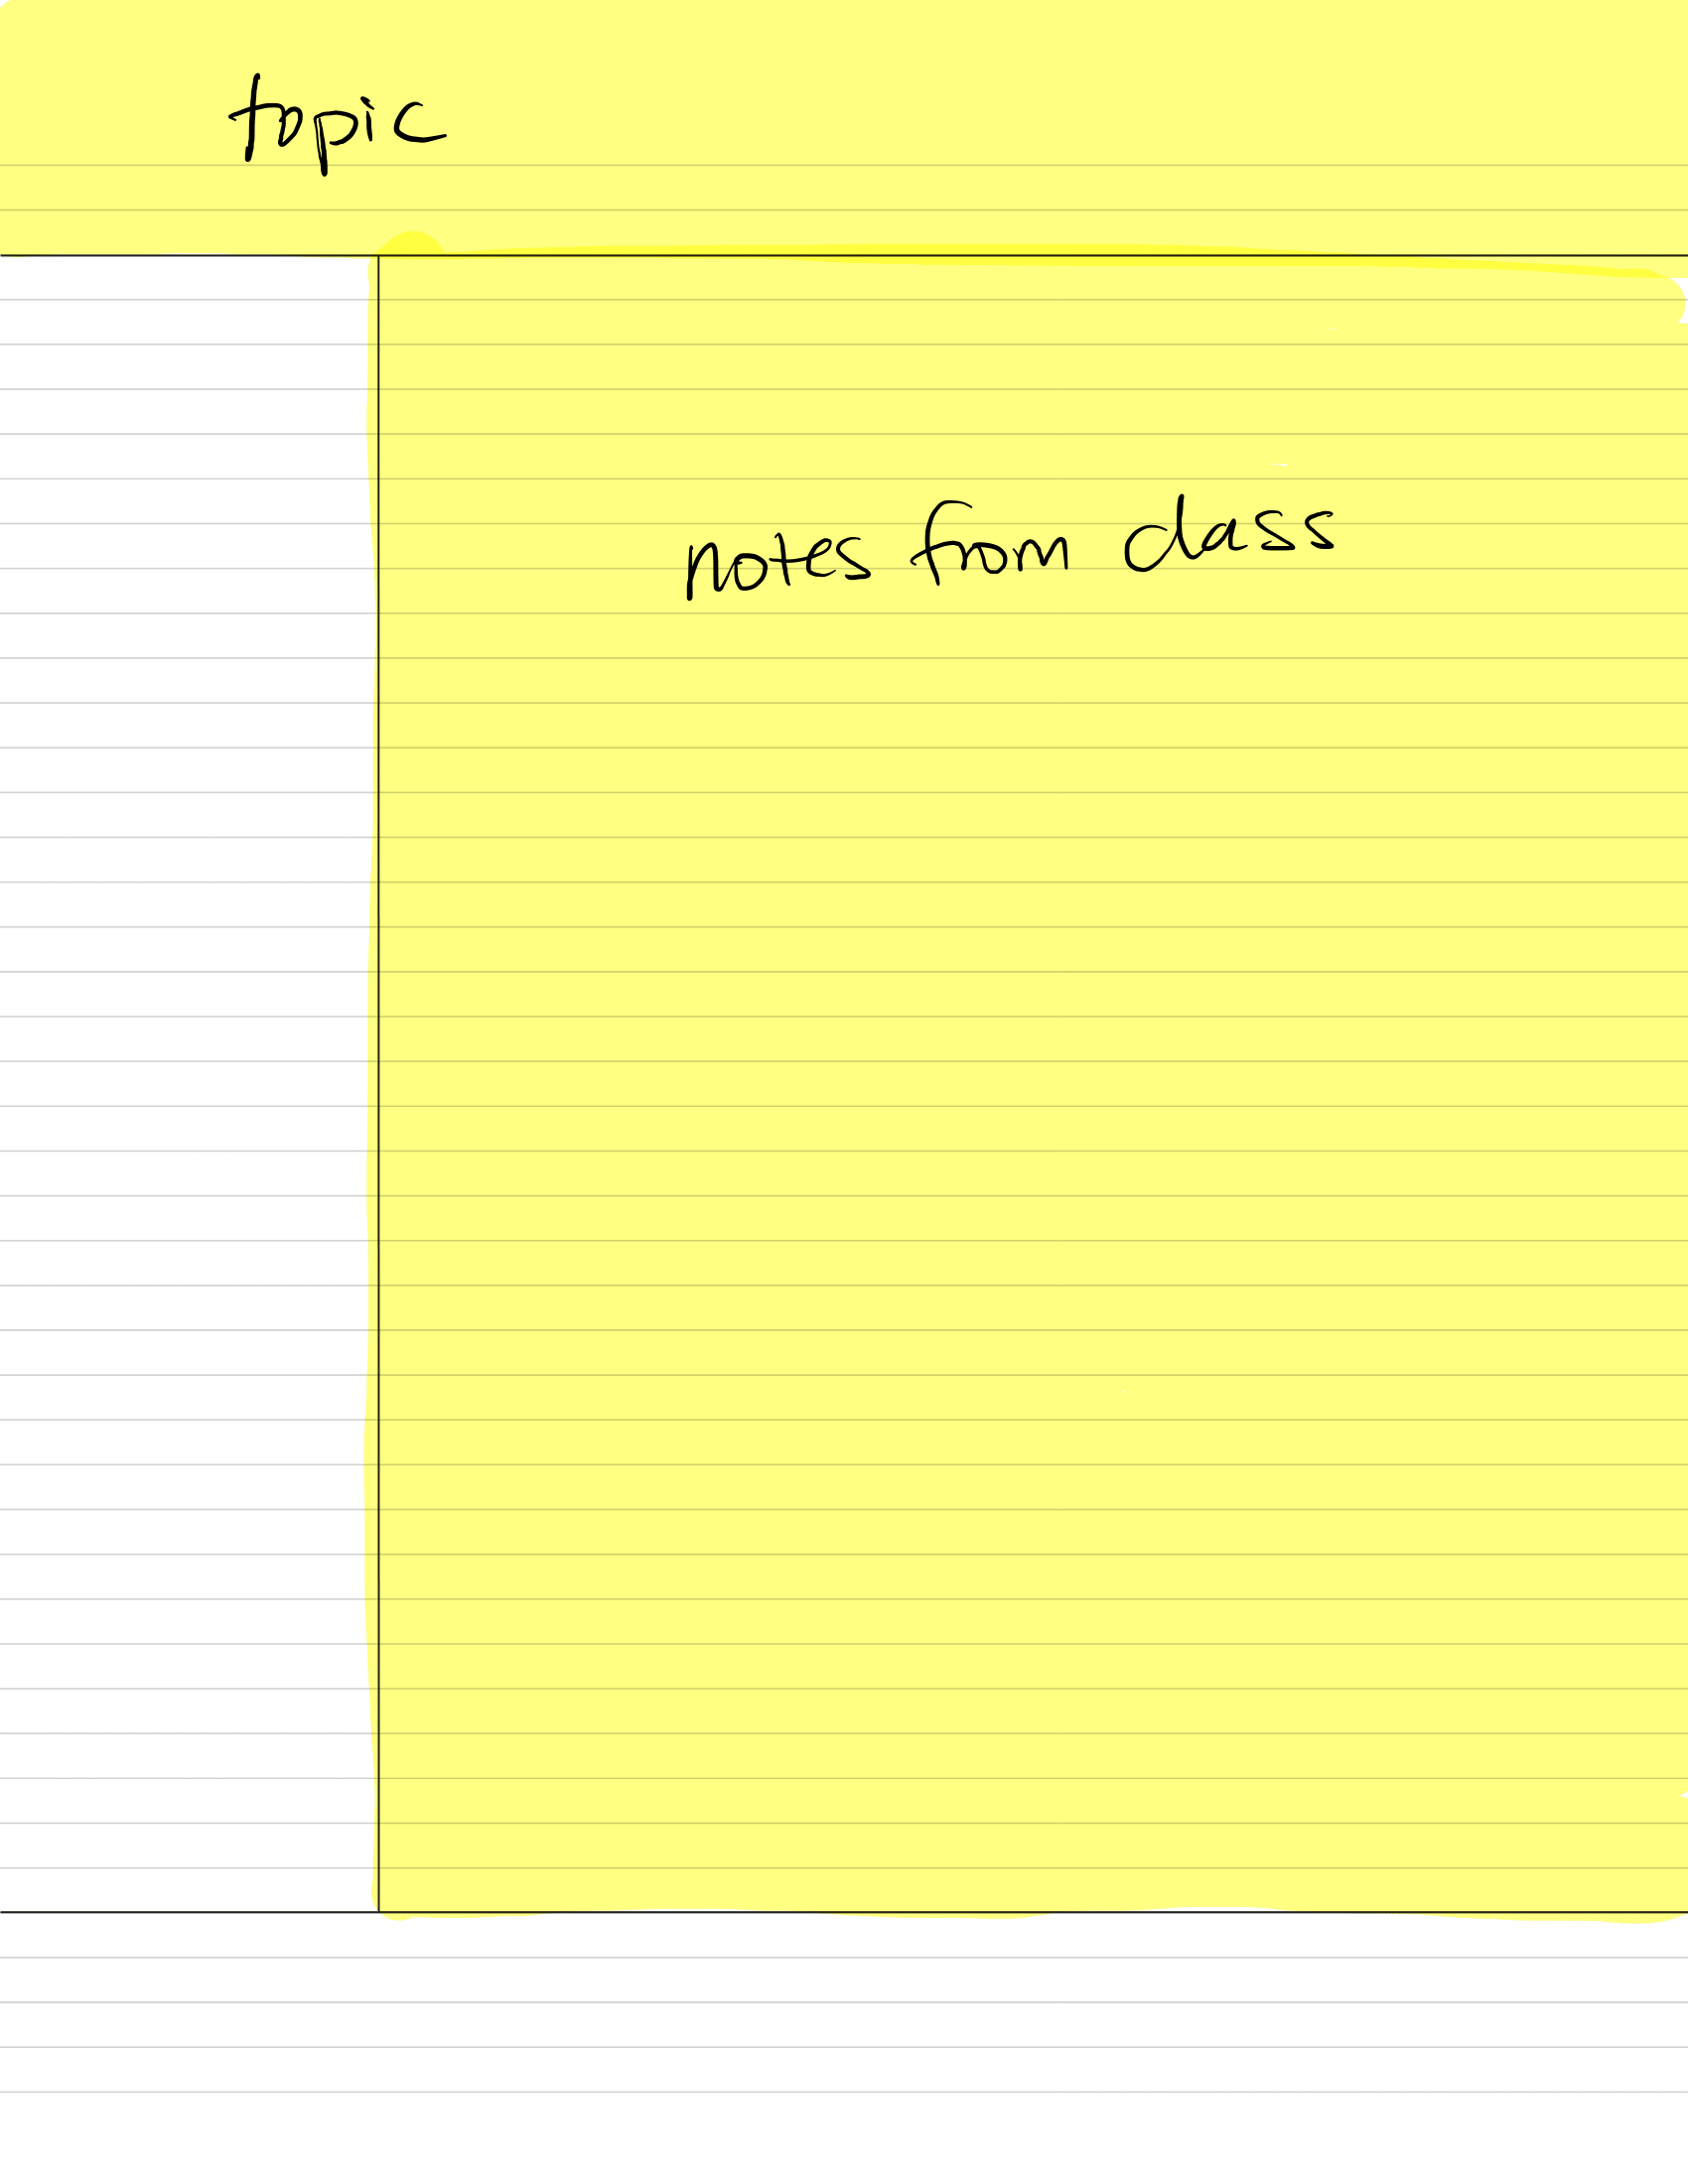 topic
notes from class